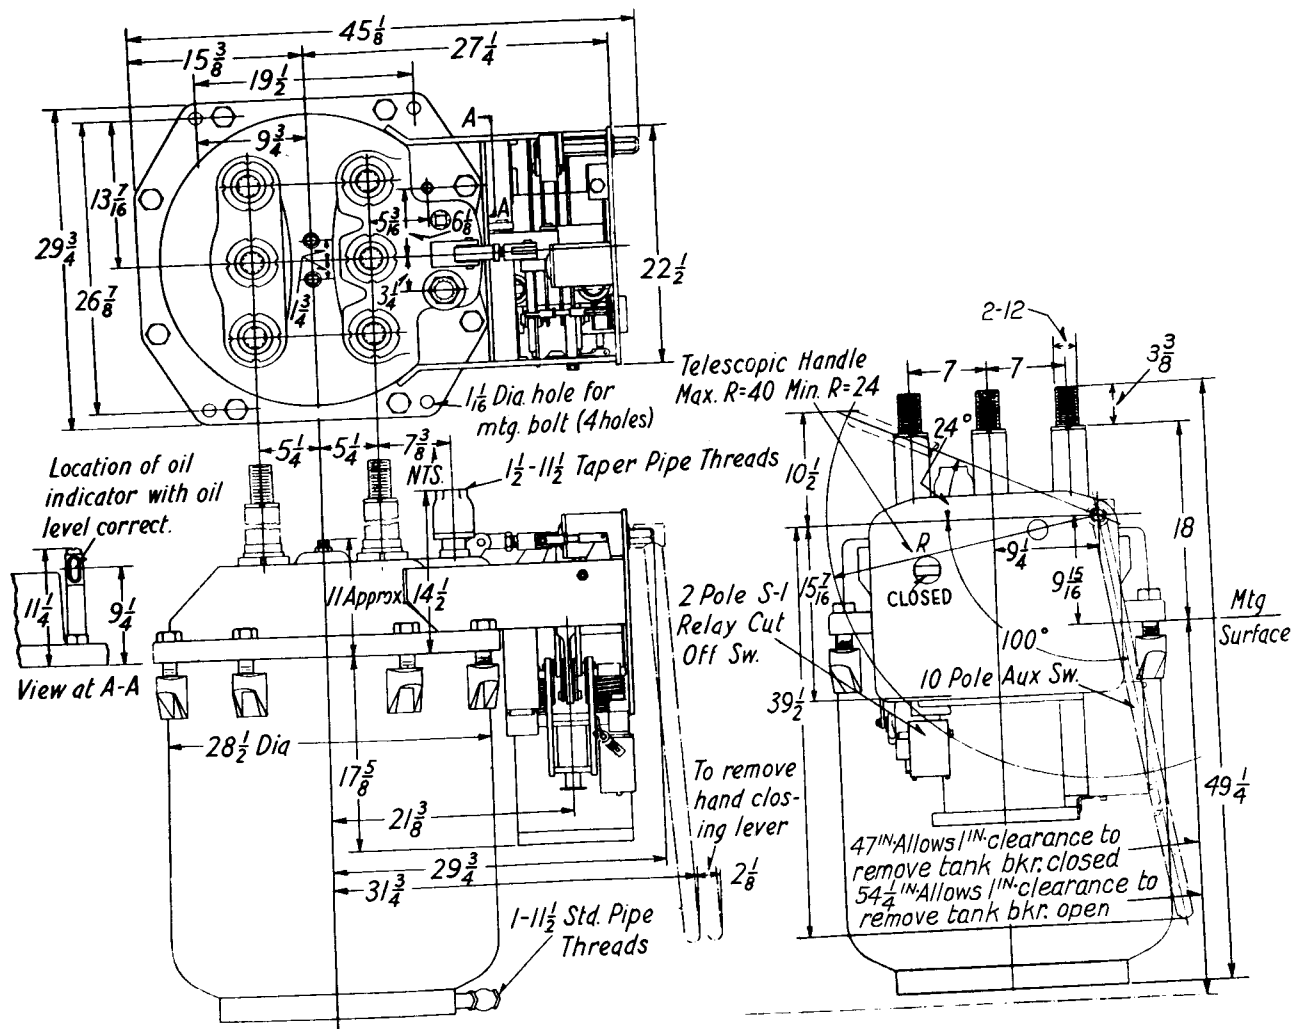 45 1/8
15 3/8
27 1/4
19 1/2
9 3/4
A
13 7/16
29 3/4
26 7/8
5 3/16
6 1/8
A
3 1/4
1 3/4
22 1/2
1 1/16 Dia. hole for
mtg. bolt (4 holes)
5 1/4
5 1/4
7 3/8
NTS.
1 1/2-11 1/2 Taper Pipe Threads
Location of oil
indicator with oil
level correct.
11 1/4
9 1/4
View at A-A
11 Approx.
14 1/2
28 1/2 Dia
17 5/8
21 3/8
29 3/4
31 3/4
2 1/8
To remove
hand clos-
ing lever
1-11 1/2 Std. Pipe
Threads
2-12
7
7
3 3/8
Telescopic Handle
Max. R=40 Min. R=24
24°
10 1/2
18
R
9 1/4
9 15/16
15 7/16
CLOSED
2 Pole S-1
Relay Cut
Off Sw.
Mtg
Surface
100°
10 Pole Aux Sw.
39 1/2
49 1/4
47 IN. Allows 1 IN. clearance to
remove tank bkr. closed
54 1/4 IN. Allows 1 IN. clearance to
remove tank bkr. open